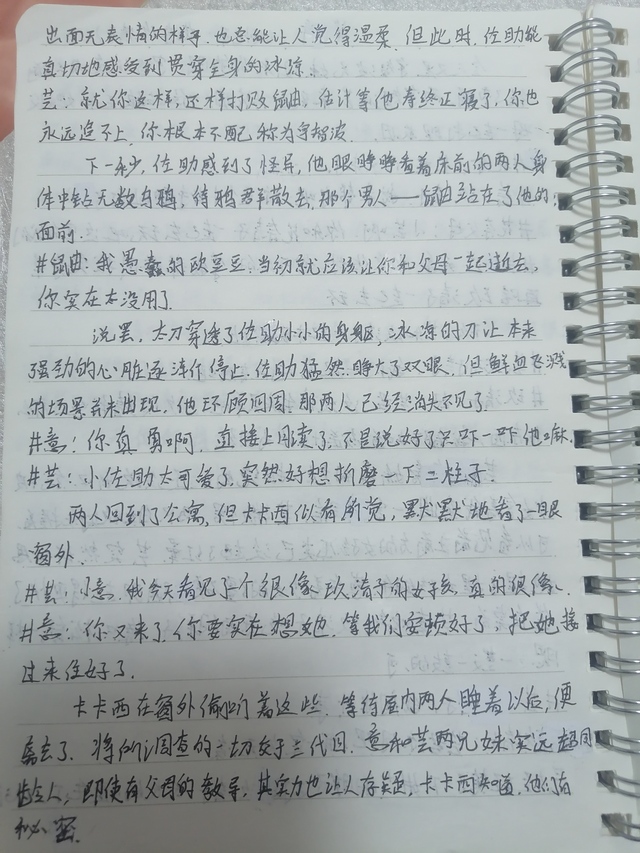 出面无表情的样子.也总能让人觉得温柔.但此时.佐助能
真切地感受到贯穿全身的冰凉.
芸:就你这样,还样打败鼬,估计等他寿终正寝了,你也
永远追不上.你根本不配称为宇智波.
下一秒,佐助感到了怪异,他眼睁睁看着床前的两人身
体中钻无数乌鸦,待鸦群散去,那个男人——鼬站在了他的
面前.
#鼬:我愚蠢的欧豆豆.当初就应该让你和父母一起逝去,
你实在太没用了.
说罢,太刀穿透了佐助小小的身躯,冰冷的刀让本来
强劲的心脏逐渐停止.佐助猛然睁大了双眼.但鲜血飞溅
的场景并未出现,他环顾四周.那两人已经消失不见了.
#意:你真勇啊,直接上月读了.不是说好了只吓一吓他嘛.
#芸:小佐助太可爱了.突然好想折磨一下二柱子.
两人回到了公寓,但卡卡西似有所觉,默默地看了一眼
窗外.
#芸:小意.我今天看见了一个很像玖清子的女孩,真的很像.
#意:你又来了.你要实在想她.等我们安顿好了,把她接
过来住好了.
卡卡西在窗外偷听着这些.等待屋内两人睡着以后,便
离去了.将所调查的一切交于三代目.意和芸两兄妹实远超同
龄人,即使有父母的教导,其实力也让人存疑,卡卡西知道,他们有
秘密.